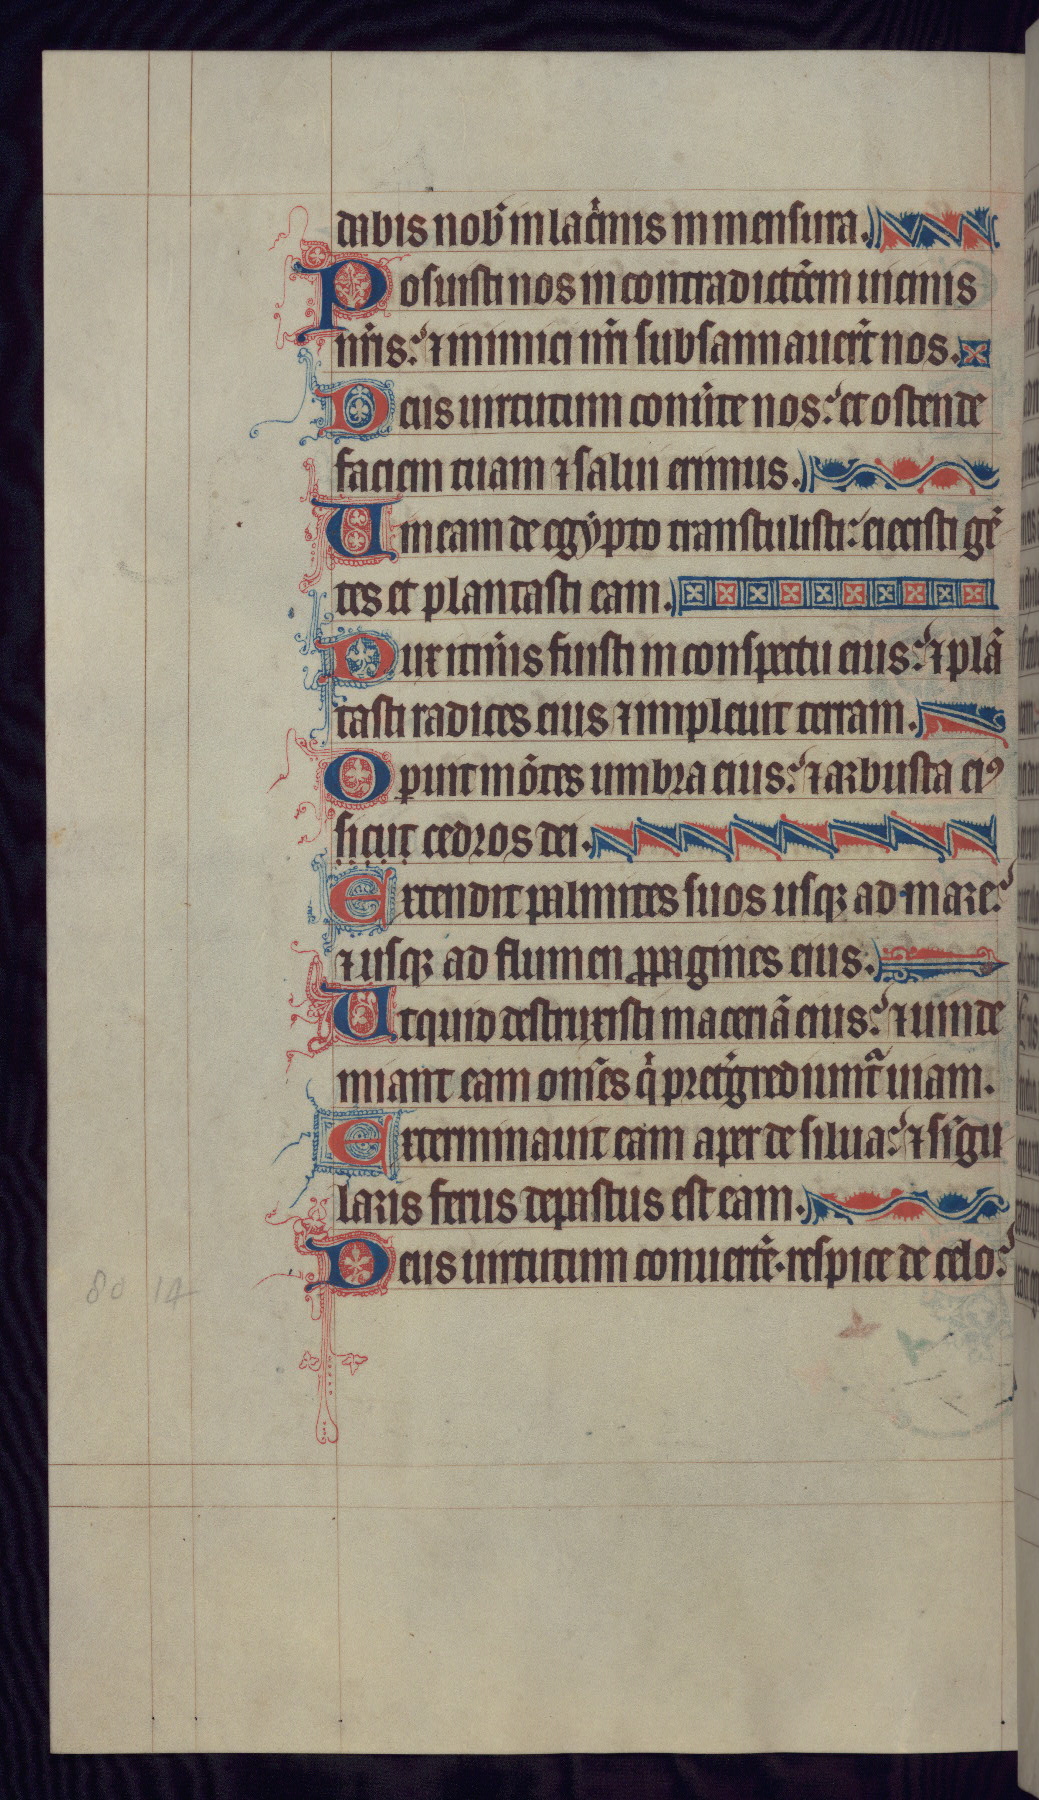 dabis nob̄ in lac̓mis in mensura.
Posuisti nos in contradictōem uicinis
nr̄is: ⁊ inimici nr̄i subsannauer̄t nos.
Deus uirtutum conu̓te nos: et ostende
faciem tuam ⁊ salui erimus.
Uineam de egypto transtulisti: eiecisti gē
tes et plantasti eam.
Dux itin̓is fuisti in conspectu eius: ⁊ plā
tasti radices eius ⁊ impleuit terram.
Operuit mōtes umbra eius: ⁊ arbusta eiꝰ
sicut cedros dei.
Extendit palmites suos usqꝫ ad mare:
⁊ usqꝫ ad flumen ꝓpagines eius.
Utquid destruxisti maceriā eius: ⁊ uinde
miant eam om̄es qͥ pretg̓rediuntᷓ uiam.
Exterminauit eam aper de silua: ⁊ sīgu
laris ferus depastus est eam.
Deus uirtutum conuerte. respice de celo:
80 14